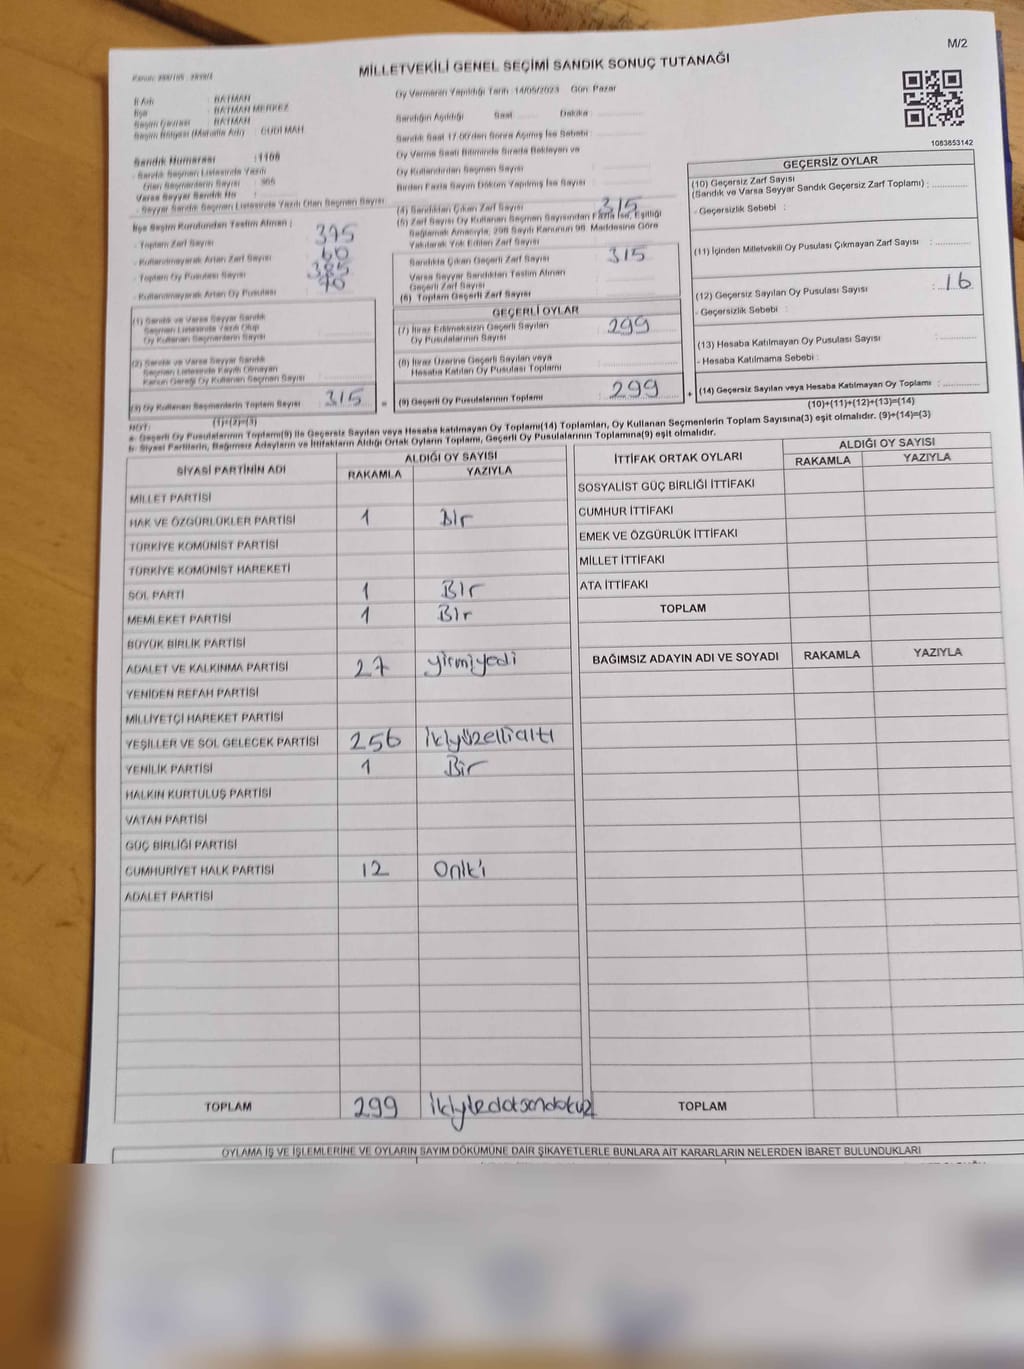 M/2
MİLLETVEKİLİ GENEL SEÇİMİ SANDIK SONUÇ TUTANAĞI
İl Adı : BATMAN
İlçe : BATMAN MERKEZ
Seçim Çevresi : BATMAN
Seçim Bölgesi (Mahalle Adı) : GÜDİ MAH.
Sandık Numarası : 1108
- Sandık Seçmen Listesinde Yazılı
Olan Seçmenlerin Sayısı : 365
Varsa Seyyar Sandık No :
- Seyyar Sandık Seçmen Listesinde Yazılı Olan Seçmen Sayısı
İlçe Seçim Kurulundan Teslim Alınan ;
- Toplam Zarf Sayısı 395
- Kullanılmayarak Artan Zarf Sayısı
- Toplam Oy Pusulası Sayısı
- Kullanılmayarak Artan Oy Pusulası 70
(1) Sandık ve Varsa Seyyar Sandık
Seçmen Listesinde Yazılı Olup
Oy Kullanan Seçmenlerin Sayısı
(2) Sandık ve Varsa Seyyar Sandık
Seçmen Listesinde Kayıtlı Olmayan
Kanun Gereği Oy Kullanan Seçmen Sayısı
(3) Oy Kullanan Seçmenlerin Toplam Sayısı 315 =
(1)+(2)=(3)
Oy Vermenin Yapıldığı Tarih :14/05/2023 Gün: Pazar
Sandığın Açıldığı Saat Dakika :
Sandık Saat 17:00'den Sonra Açılmış İse Sebebi :
Oy Verme Saati Bitiminde Sırada Bekleyen ve
Oy Kullandırılan Seçmen Sayısı
Birden Fazla Sayım Döküm Yapılmış İse Sayısı
(4) Sandıktan Çıkan Zarf Sayısı 315
(5) Zarf Sayısı Oy Kullanan Seçmen Sayısından Fazla İse, Eşitliği
Sağlamak Amacıyla, 298 Sayılı Kanunun 98. Maddesine Göre
Yakılarak Yok Edilen Zarf Sayısı
Sandıkta Çıkan Geçerli Zarf Sayısı 315
Varsa Seyyar Sandıktan Teslim Alınan
Geçerli Zarf Sayısı
(6) Toplam Geçerli Zarf Sayısı
GEÇERLİ OYLAR
(7) İtiraz Edilmeksizin Geçerli Sayılan
Oy Pusulasının Sayısı : 299
(8) İtiraz Üzerine Geçerli Sayılan veya
Hesaba Katılan Oy Pusulası Toplamı
(9) Geçerli Oy Pusulalarının Toplamı 299 +
1083853142
GEÇERSİZ OYLAR
(10) Geçersiz Zarf Sayısı
(Sandık ve Varsa Seyyar Sandık Geçersiz Zarf Toplamı) :
- Geçersizlik Sebebi :
(11) İçinden Milletvekili Oy Pusulası Çıkmayan Zarf Sayısı :
(12) Geçersiz Sayılan Oy Pusulası Sayısı : 16
- Geçersizlik Sebebi :
(13) Hesaba Katılmayan Oy Pusulası Sayısı :
- Hesaba Katılmama Sebebi :
(14) Geçersiz Sayılan veya Hesaba Katılmayan Oy Toplamı :
(10)+(11)+(12)+(13)=(14)
NOT:
a- Geçerli Oy Pusulalarının Toplamı(9) ile Geçersiz Sayılan veya Hesaba katılmayan Oy Toplamı(14) Toplamları, Oy Kullanan Seçmenlerin Toplam Sayısına(3) eşit olmalıdır. (9)+(14)=(3)
b- Siyasi Partilerin, Bağımsız Adayların ve İttifakların Aldığı Ortak Oyların Toplamı, Geçerli Oy Pusulalarının Toplamına(9) eşit olmalıdır.
SİYASİ PARTİNİN ADI ALDIĞI OY SAYISI
RAKAMLA YAZIYLA
MİLLET PARTİSİ
HAK VE ÖZGÜRLÜKLER PARTİSİ 1 Bir
TÜRKİYE KOMÜNİST PARTİSİ
TÜRKİYE KOMÜNİST HAREKETİ
SOL PARTİ 1 Bir
MEMLEKET PARTİSİ 1 Bir
BÜYÜK BİRLİK PARTİSİ
ADALET VE KALKINMA PARTİSİ 27 yirmiyedi
YENİDEN REFAH PARTİSİ
MİLLİYETÇİ HAREKET PARTİSİ
YEŞİLLER VE SOL GELECEK PARTİSİ 256 ikiyüzellialtı
YENİLİK PARTİSİ 1 Bir
HALKIN KURTULUŞ PARTİSİ
VATAN PARTİSİ
GÜÇ BİRLİĞİ PARTİSİ
CUMHURİYET HALK PARTİSİ 12 Oniki
ADALET PARTİSİ
TOPLAM 299
İTTİFAK ORTAK OYLARI ALDIĞI OY SAYISI
RAKAMLA YAZIYLA
SOSYALİST GÜÇ BİRLİĞİ İTTİFAKI
CUMHUR İTTİFAKI
EMEK VE ÖZGÜRLÜK İTTİFAKI
MİLLET İTTİFAKI
ATA İTTİFAKI
TOPLAM
BAĞIMSIZ ADAYIN ADI VE SOYADI RAKAMLA YAZIYLA
TOPLAM
OYLAMA İŞ VE İŞLEMLERİNE VE OYLARIN SAYIM DÖKÜMÜNE DAİR ŞİKAYETLERLE BUNLARA AİT KARARLARIN NELERDEN İBARET BULUNDUKLARI